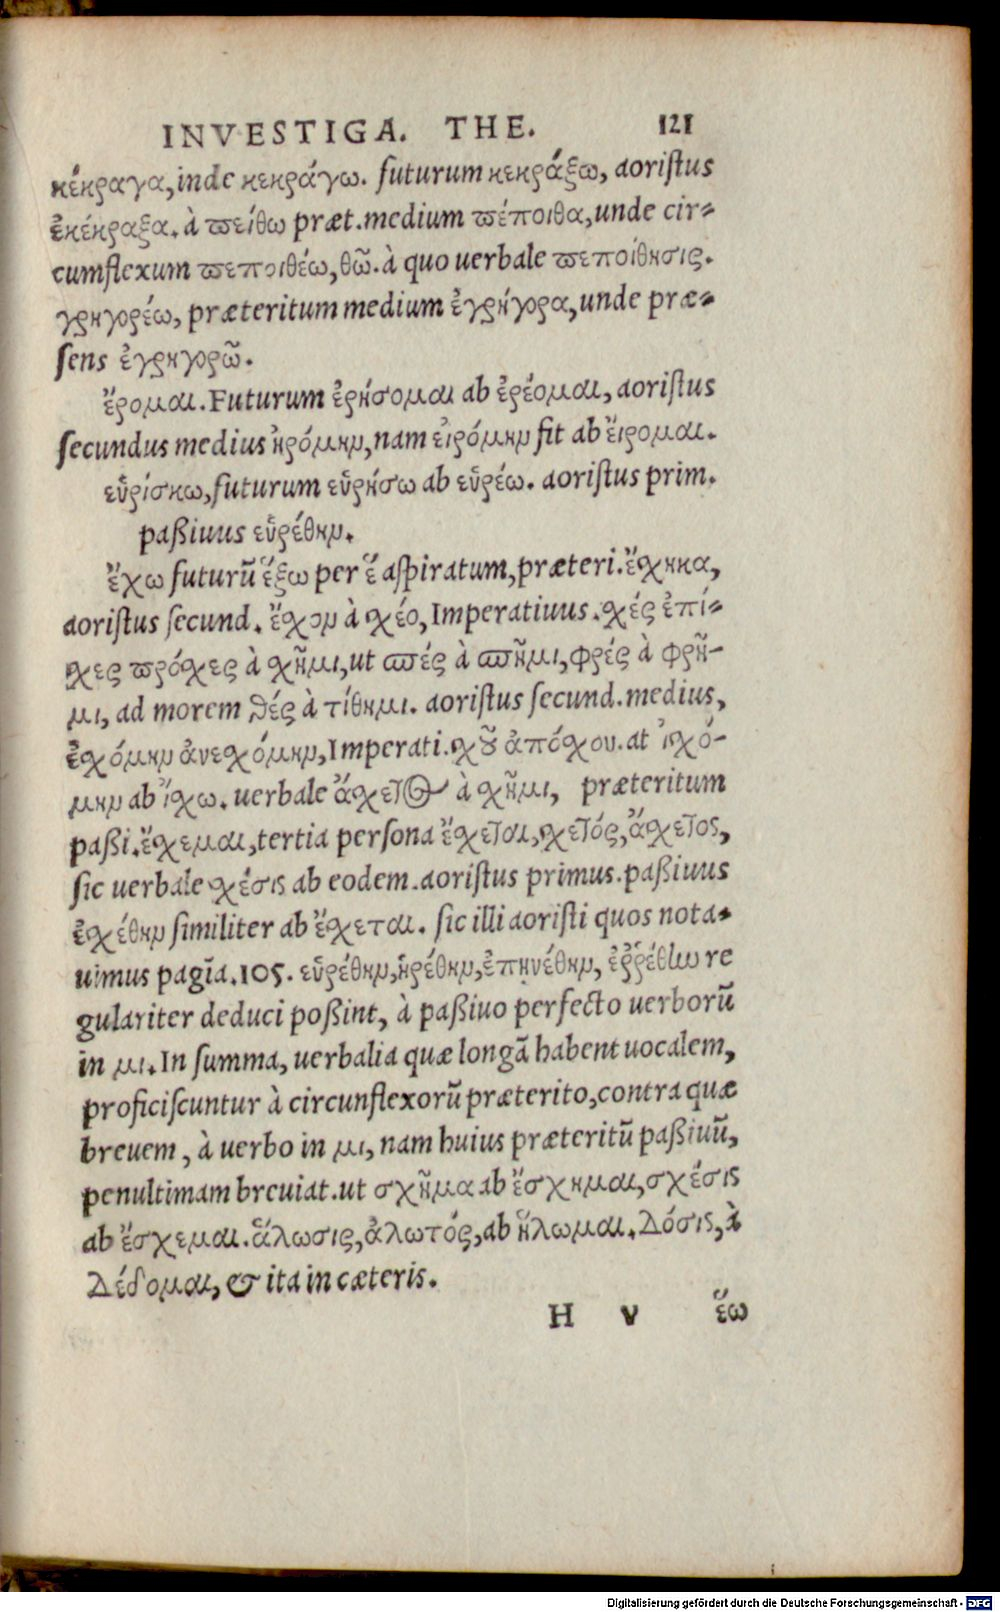 INVESTIGA. THE. 121
κέκραγα, inde κεκράγω. futurum κεκράξω, aoristus
ἐκέκραξα. à πείθω præt. medium πέποιθα, unde cir-
cumflexum πεποιθέω, θῶ. à quo uerbale πεποίθησις.
γρηγορέω, præteritum medium ἐγρήγορα, unde præ-
sens ἐγρηγορῶ.
ἔρομαι. Futurum ἐρήσομαι ab ἐρέομαι, aoristus
secundus medius ἠρόμην, nam εἰρόμην fit ab εἴρομαι.
εὑρίσκω, futurum εὑρήσω ab εὑρέω. aoristus prim.
paßiuus εὑρέθην.
ἔχω futurũ ἕξω per ἕ aspiratum, præteri. ἔσχηκα,
aoristus secund. ἔσχον à σχέο, Imperatiuus. σχές ἐπί-
σχες πρόσχες à σχῆμι, ut σπές à σπῆμι, φρές à φρῆ-
μι, ad morem θές à τίθημι. aoristus secund. medius,
ἐσχόμην ἀνεσχόμην, Imperati. σχοῦ ἀπόσχου. at ἰσχό-
μην ab ἴσχω. uerbale ἄσχετος à σχῆμι, præteritum
paßi. ἔσχεμαι, tertia persona ἔσχεται, σχετός, ἄσχετος,
sic uerbale σχέσις ab eodem. aoristus primus. paßiuus
ἐσχέθην similiter ab ἔσχεται. sic illi aoristi quos nota-
uimus pagĩa. 105. εὑρέθην, ᾑρέθην, ἐπῃνέθην, ἐῤῥέθην re
gulariter deduci poßint, à paßiuo perfecto uerborũ
in μι. In summa, uerbalia quæ longã habent uocalem,
proficiscuntur à circunflexorũ præterito, contra quæ
breuem, à uerbo in μι, nam huius præteritũ paßiuũ,
penultimam breuiat. ut σχῆμα ab ἔσχημαι, σχέσις
ab ἔσχεμαι. ἅλωσις, ἁλωτός, ab ἥλωμαι. Δόσις, à
Δέδομαι, & ita in cæteris.
H v ἕω
Digitalisierung gefördert durch die Deutsche Forschungsgemeinschaft - DFG